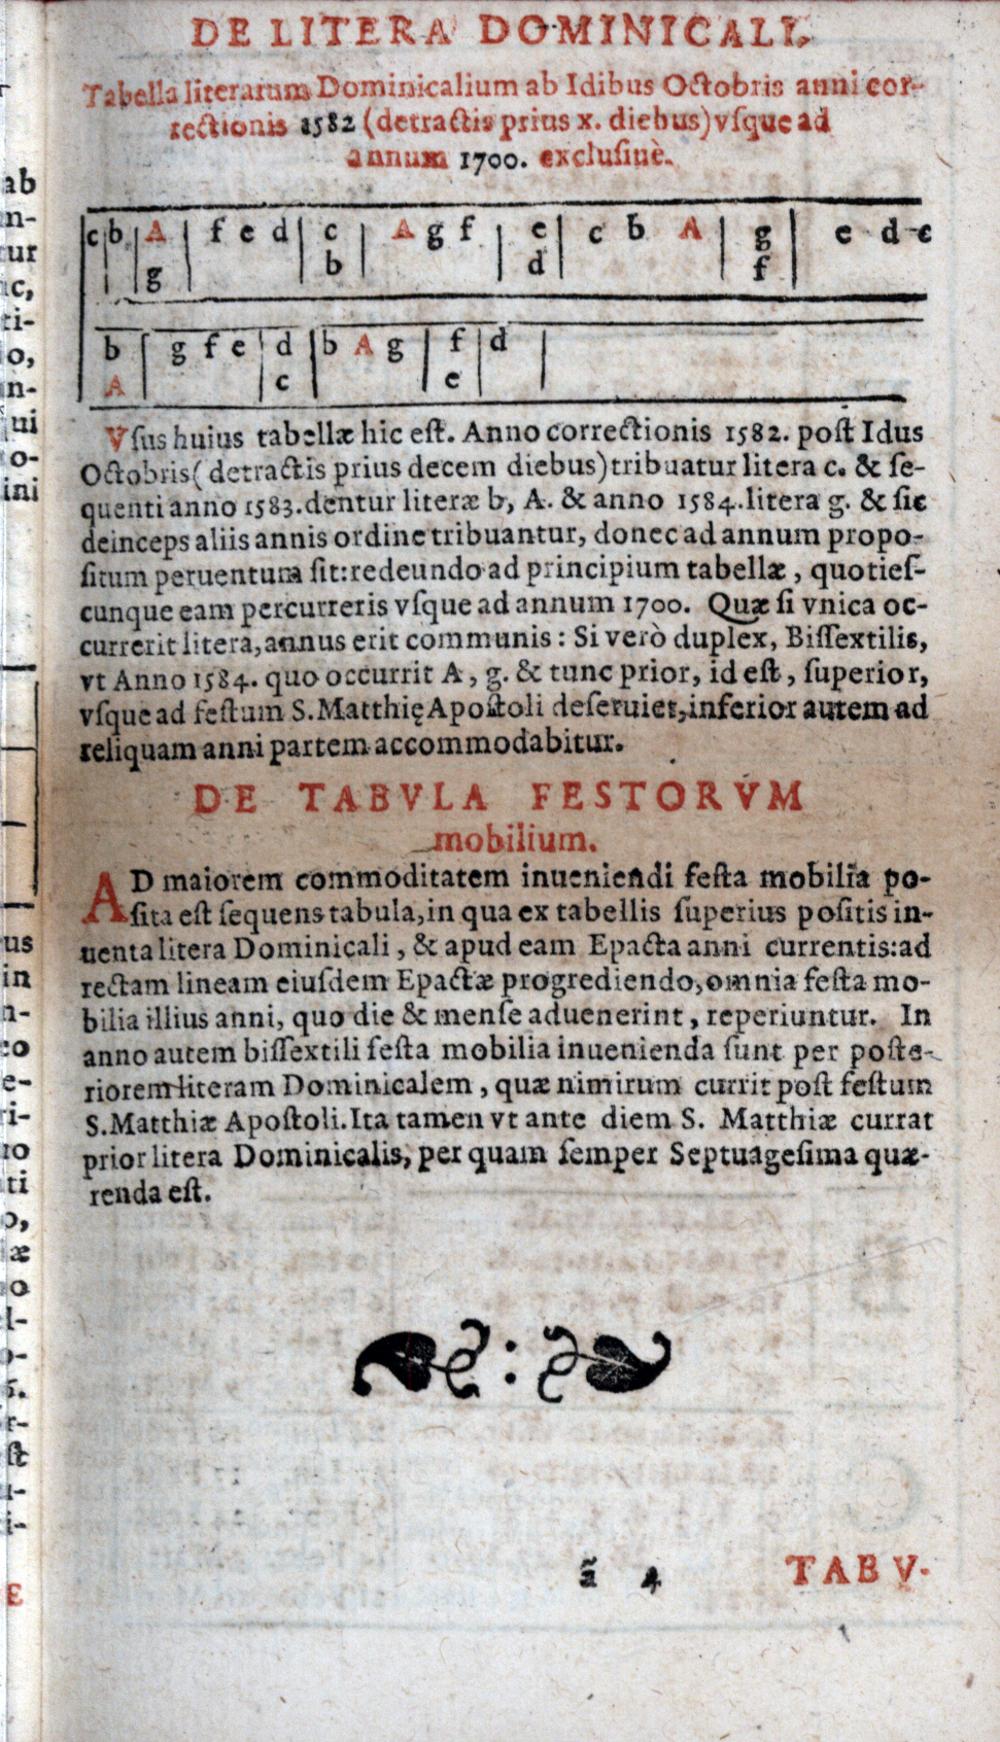 DE LITERA DOMINICALI,
Tabella literarum Dominicalium ab Idibus Octobris anni cor-
rectionis 1582 (detractis prius x. diebus) vſque ad
annum 1700. excluſiuè.
c b A f e d c A g f e c b A g e d c
g b d f
b g f e d b A g f d
A c e
Vſus huius tabellæ hic eſt. Anno correctionis 1582. poſt Idus
Octobris (detractis prius decem diebus) tribuatur litera c. & ſe-
quenti anno 1583. dentur literæ b, A. & anno 1584. litera g. & ſic
deinceps aliis annis ordine tribuantur, donec ad annum propo-
ſitum peruentum ſit: redeundo ad principium tabellæ, quotieſ-
cunque eam percurreris vſque ad annum 1700. Quæ ſi vnica oc-
currerit litera, annus erit communis: Si verò duplex, Biſſextilis,
vt Anno 1584. quo occurrit A, g. & tunc prior, id eſt, ſuperior,
vſque ad feſtum S. Matthię Apoſtoli deſeruiet, inferior autem ad
reliquam anni partem accommodabitur.
DE TABVLA FESTORVM
mobilium.
AD maiorem commoditatem inueniendi feſta mobilia po-
ſita eſt ſequens tabula, in qua ex tabellis ſuperius poſitis in-
uenta litera Dominicali, & apud eam Epacta anni currentis: ad
rectam lineam eiuſdem Epactæ progrediendo, omnia feſta mo-
bilia illius anni, quo die & menſe aduenerint, reperiuntur. In
anno autem biſſextili feſta mobilia inuenienda ſunt per poſte-
riorem literam Dominicalem, quæ nimirum currit poſt feſtum
S. Matthiæ Apoſtoli. Ita tamen vt ante diem S. Matthiæ currat
prior litera Dominicalis, per quam ſemper Septuageſima quæ-
renda eſt.
ã 4 TABV-
ab
n-
tur
ic,
ti-
o,
n-
qui
o-
ini
us
in
n-
co
e-
ri-
ro
ti
o,
æ
o
l-
o-
r-
ſt
i-
E